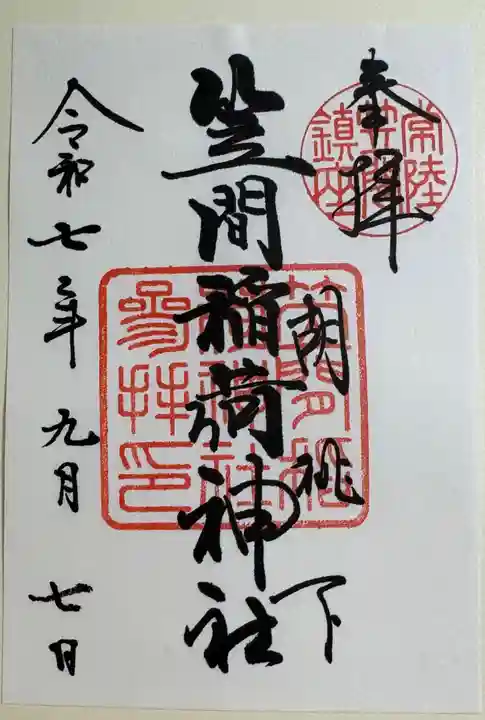 奉拝
常陸
笠間
鎮座
胡桃下
笠間稲荷神社
笠間稲
荷神社
參拜印
令和七年九月七日